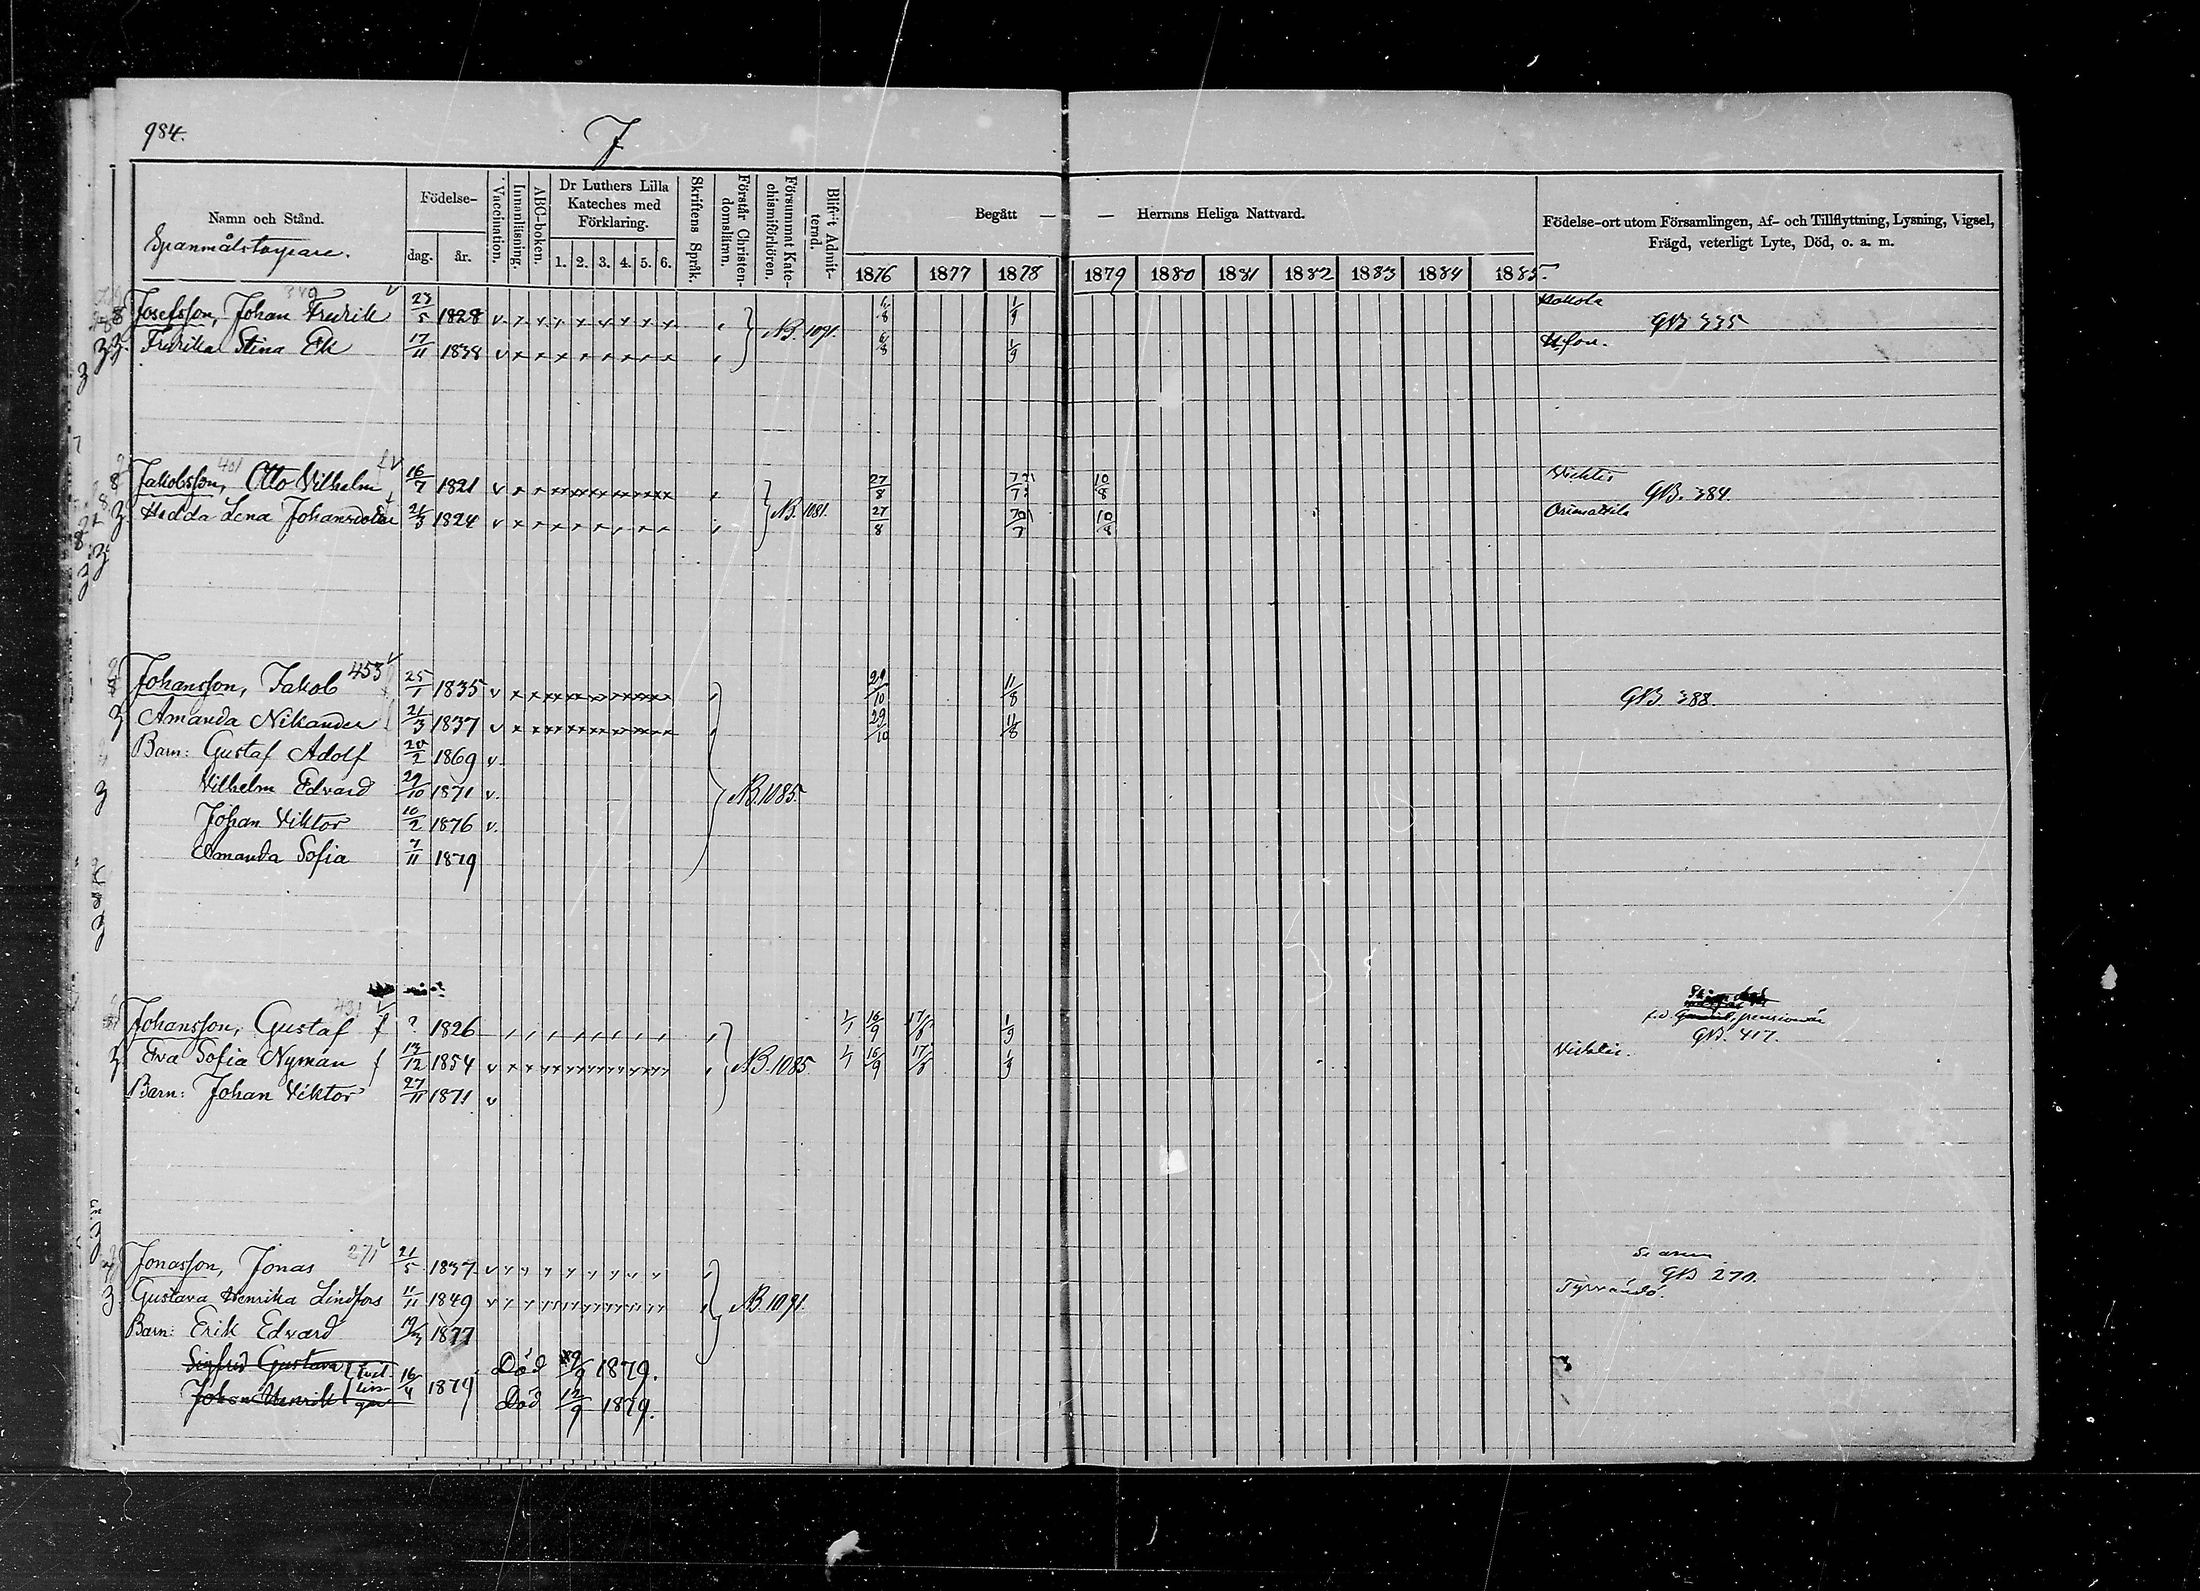 984.
J
Namn och Stånd.
Födelse-
dag.
år.
Vaccination.
Innanläsning.
ABC-boken.
Dr Luthers Lilla
Kateches med
Förklaring.
1. 2. 3. 4. 5. 6.
Skriftens Språk.
Förstår Christen-
domslärnn.
Försummat Kate-
chismiförhören.
Blifvit Admit-
terad.
Begått — — Herrans Heliga Nattvard.
1876 1877 1878 1879 1880 1881 1882 1883 1884 1885.
Födelse-ort utom Församlingen, Af- och Tillflyttning, Lysning, Vigsel,
Frägd, veterligt Lyte, Död, o. a. m.
Josefsson, Johan Fredrik 23/5 1828 NB. 1091. 6/8 1/9 GB 335
Fredrika Stina Ek 17/11 1838 6/8 1/9
Jakobsson, Otto Vilhelm 401 16/7 1821 27/8 10/8 Vichtis GB. 384.
Hedda Lena 1824 NB. 1081. 27/8 10/8 Orimattila
Johansson, Jakob 453 25/1 1835 29/10 11/8 GB. 388.
Amanda Nikander 21/3 1837 29/10 11/8
Barn: Gustaf Adolf 20/2 1869 v.
Vilhelm Edvard 29/10 1871 v. NB. 1085.
Johan Viktor 10/2 1876 v.
Amanda Sofia 7/11 1879
Johansson, Gustaf ? 1826 16/9 1/9 f.d. pensionär
GB. 417.
Eva Sofia Nyman 13/12 1854 NB. 1085. 16/9 1/9 Vichtis.
Barn: Johan Viktor 27/11 1871 v
Jonasson, Jonas 271 21/5 1837 GB 270.
Gustava Henrika Lindfors 11/11 1849 NB. 1091. Tyrvändö.
Barn: Erik Edvard 1877
Sigfrid Gustava Död 1879.
Johan Henrik 16/4 1879 Död 12/9 1879.